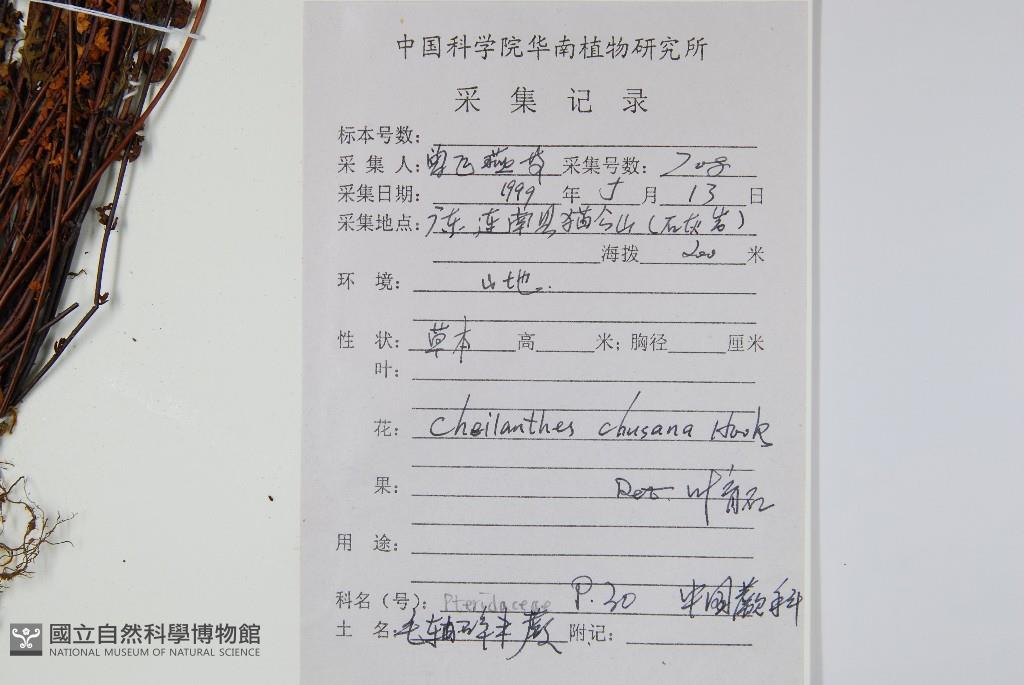 中国科学院华南植物研究所
采集记录
标本号数:
采集人:曾飞燕等 采集号数: 208
采集日期: 1999 年 5 月 13 日
采集地点: 广东连南县猫公山(石灰岩)
海拨 200 米
环境: 山地.
性状: 草本 高 米; 胸径 厘米
叶:
花: Cheilanthes chusana Hook
果: Det. 叶育石
用途:
科名(号): Pteridaceae P.30 中国蕨科
土名: 毛轴碎米蕨 附记:
國立自然科學博物館
NATIONAL MUSEUM OF NATURAL SCIENCE